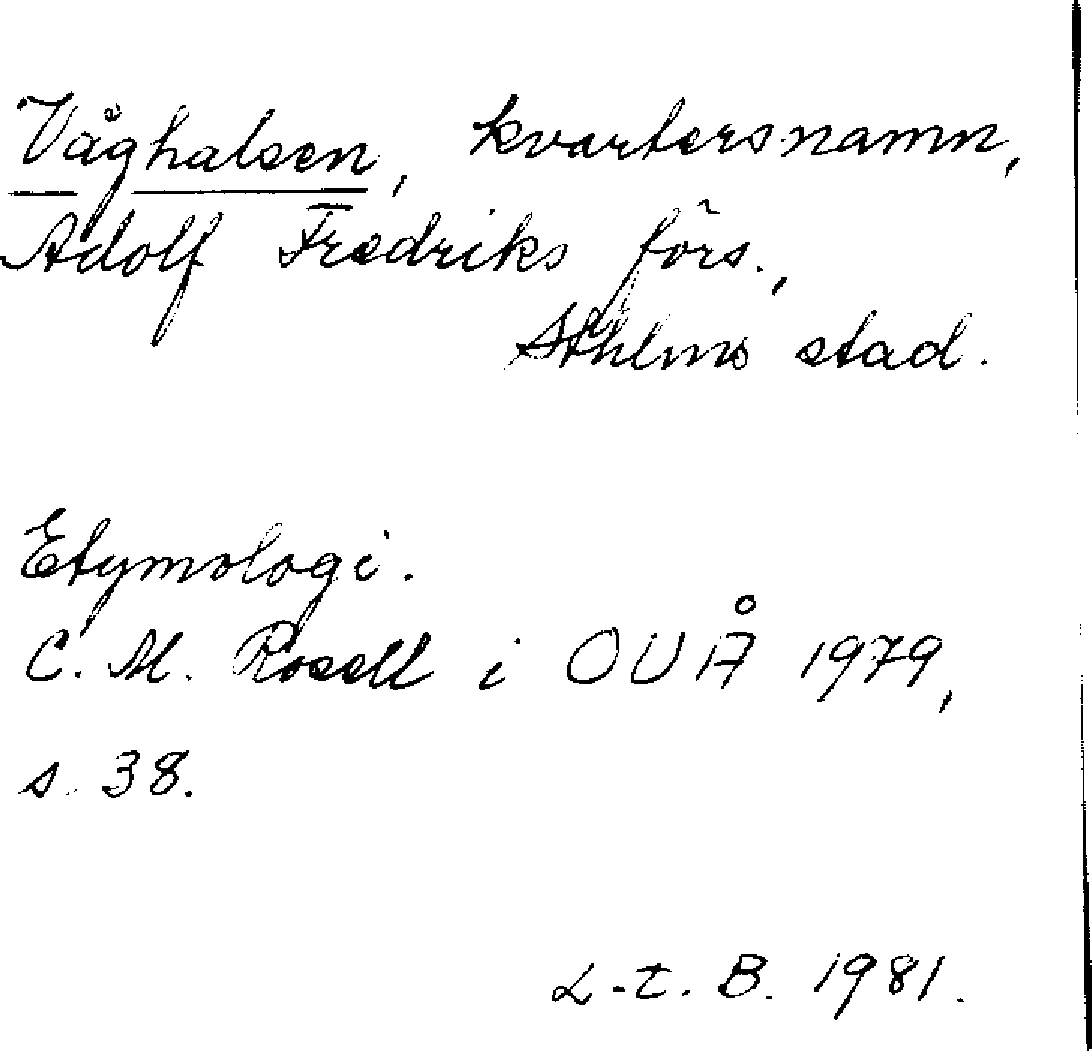 Våghalsen, kvartersnamn,
Adolf Fredriks förs.,
Sthlms stad.
Etymologi.
C. M. Rosell i OUÅ 1979,
s. 38.
L-t. B. 1981.